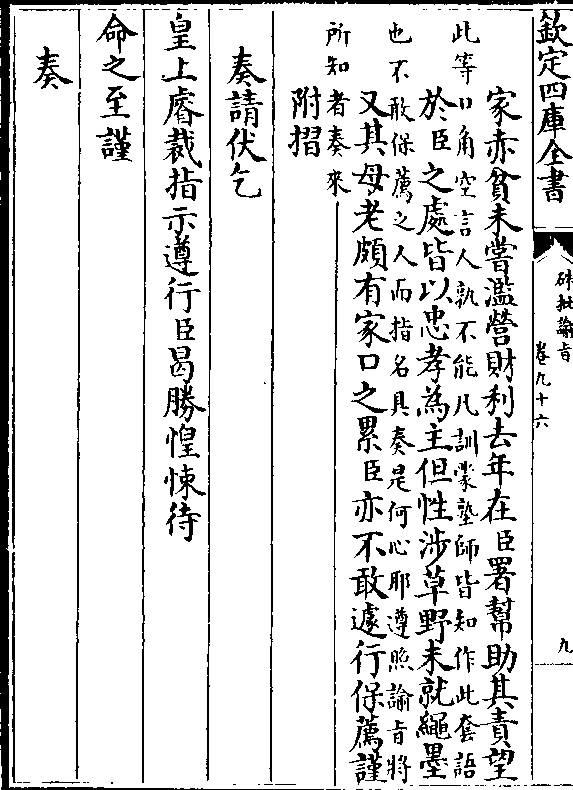 欽定四庫全書
硃批諭旨
卷九十六
九
家亦貧未嘗濫營財利去年在臣署幫助其責望
此等口角空言人孰不能凡訓蒙塾師皆知作此套語
於臣之處皆以忠孝為主但性涉草野未就繩墨
也不敢保薦之人而指名具奏是何心耶遵照諭旨將
又其母老頗有家口之累臣亦不敢遽行保薦謹
所知者奏來
附摺
奏請伏乞
皇上睿裁指示遵行臣曷勝惶悚待
命之至謹
奏